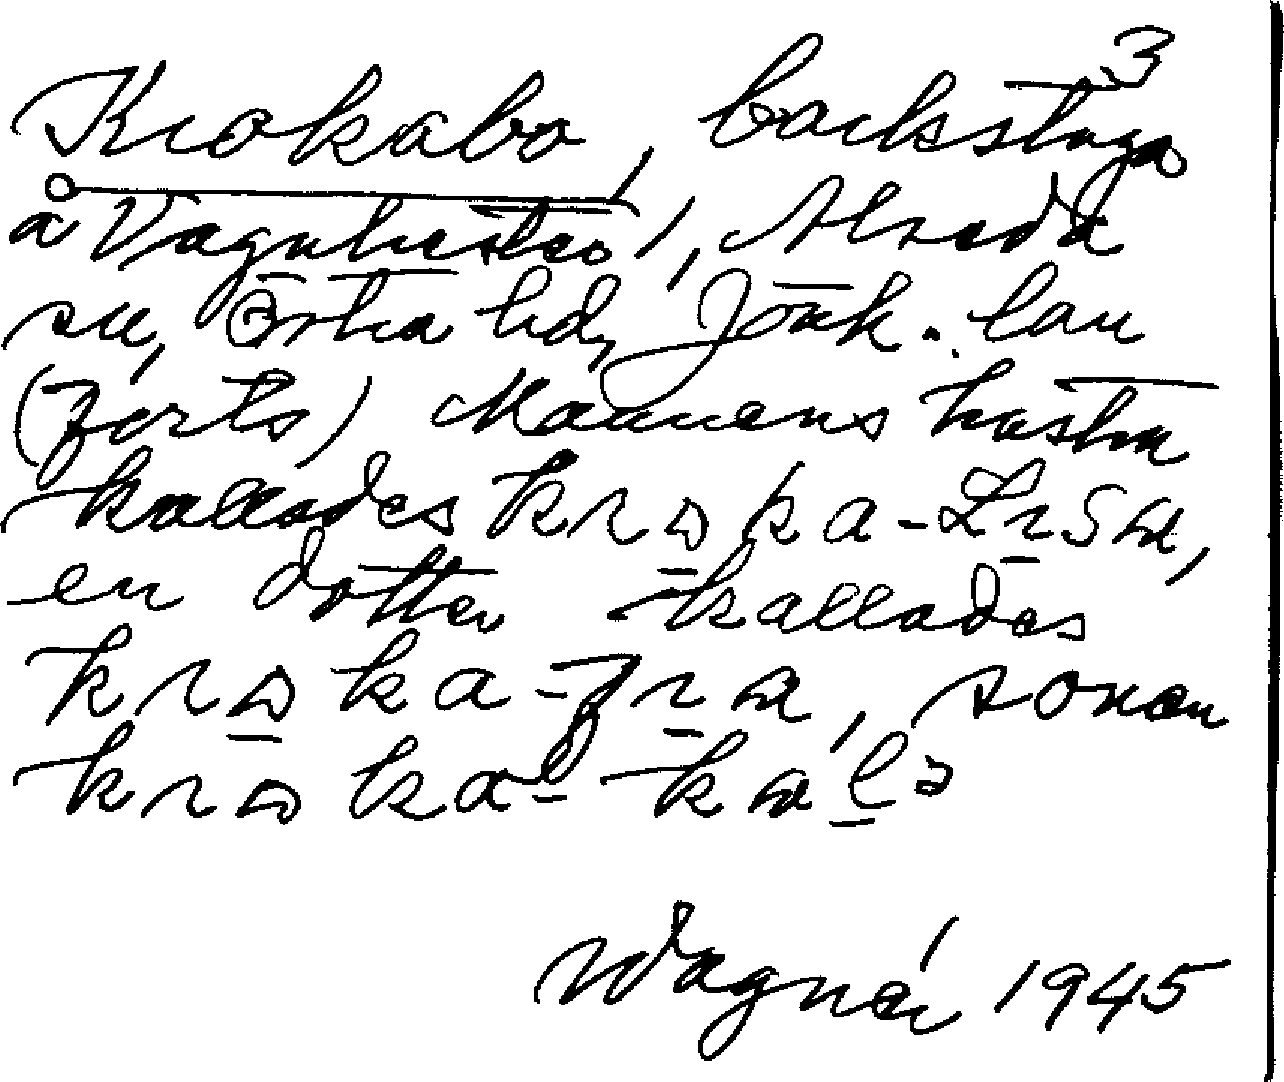 3
Krokabo, backstuga
å Vagnhester 1, Alseda
sn, Östra hd, Jönk. län
(forts) Mannens hustru
kallades kroka-Lisa,
en dotter kallades
kroka-fia, sonen
kroka-kalə
Wagnér 1945